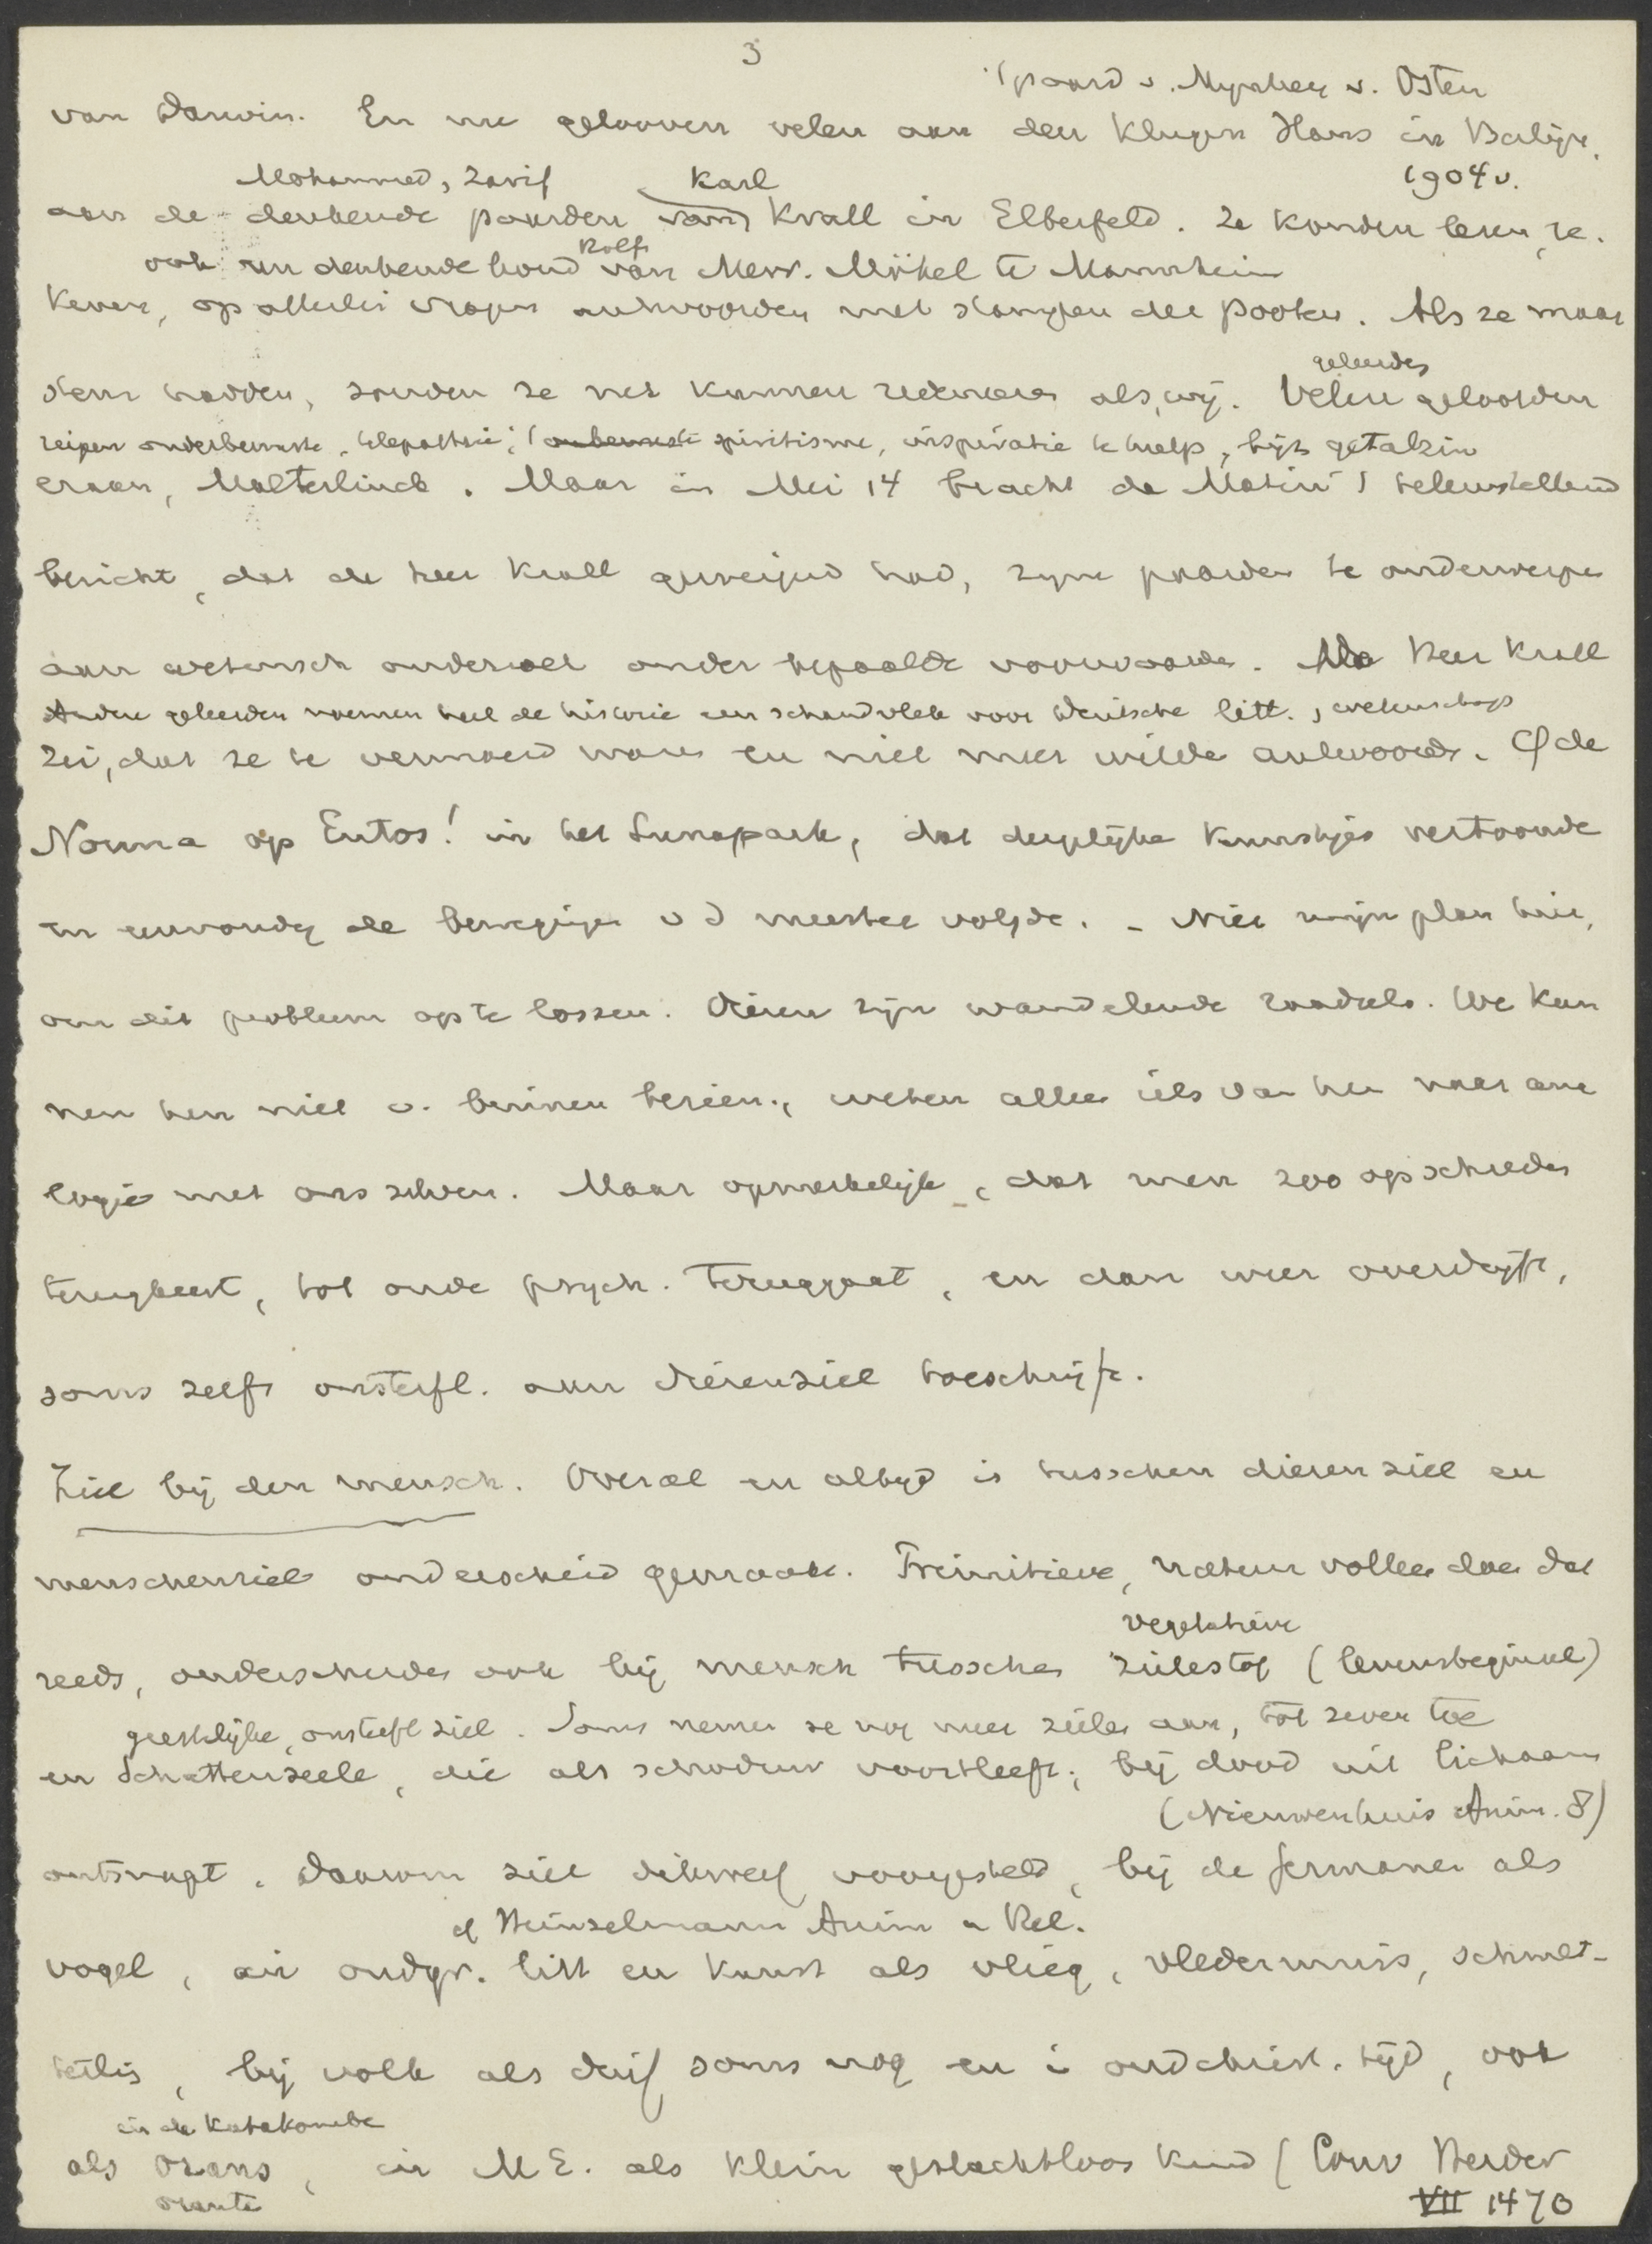 3
't paard v. Mynheer v. Osten
van Darwin. En nu gelooven velen aan den Klugen Hans in Berlijn,
Mohammed, Zarif Karl 1904 v.
aan de denkende paarden van Krall in Elberfeld. Ze konden lezen, re-
ook een denkende hond Rolf van Mevr. Mökel te Mannheim
kenen, op allerlei vragen antwoorden met stampen der pooten. Als ze maar
geleerden
stem hadden, zouden ze net kunnen redeneren als wij. Velen geloofden
riepen onderbewuste, telepathie, spiritisme, inspiratie te hulp, bijz getalzin
eraan, Maeterlinck. Maar in Mei 14 bracht de Matin 't teleurstellend
bericht, dat de heer Krall geweigerd had, zijne paarden te onderwerpen
aan wetensch onderzoek onder bepaalde voorwaarden. De Heer Krall
Andere geleerden noemen heel de historie een schandvlek voor Deutsche litt., wetenschap
zei, dat ze te vermoeid waren en niet meer wilden antwoorden. Cf de
Nonna op Entos! in het Lunapark, dat dergelijke kunstjes vertoonde
en eenvoudig de bewegingen v d meester volgde. - Niet mijn plan hier,
om dit probleem op te lossen. Dieren zijn wandelende raadsels. We kun
nen hen niet v. binnen bezien, weten alleen iets van hen naar ana
logie met ons zelven. Maar opmerkelijk, dat men zoo op schreden
terugkeert, tot oude psych. teruggaat, en dan weer overdrijft,
soms zelfs onsterfl. aan dierenziel toeschrijft.
Ziel bij den mensch. Overal en altijd is tusschen dierenziel en
menschenziel onderscheid gemaakt. Primitieve, natuurvolken doen dat
vegetatieve
reeds, onderscheiden ook bij mensch tusschen zielestof (levensbeginsel)
geestelijke, onsterfl ziel. Soms nemen ze nog meer zielen aan, tot zeven toe
en Schattenseele, die als schaduw voortleeft; bij dood uit lichaam
(Nieuwenhuis Anim. 8)
ontsnapt. Daarom ziel dikwerf voorgesteld, bij de Germanen als
cf Heinzelmann Anim u Rel.
vogel, in oudgr. litt en kunst als vlieg, vledermuis, schmet-
terling, bij volk als duif soms nog en i oudchrist. tijd, ook
in de Katakombe
als orans, in M E. als klein geslachtloos kind (Conv Herder
orante VII 1470